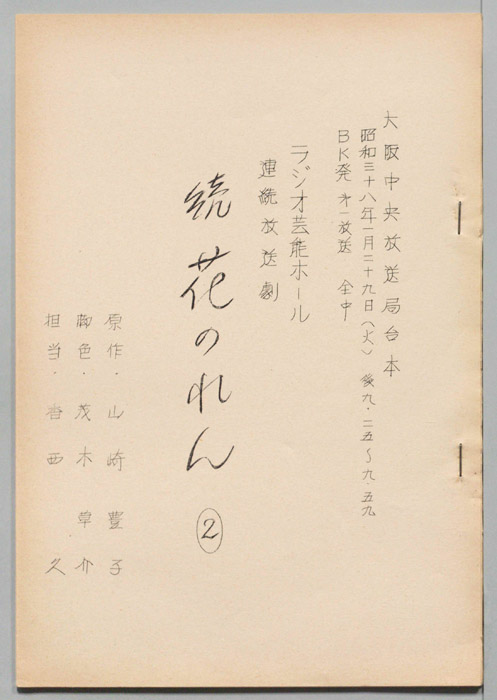 大阪中央放送局台本
昭和三十八年一月二十九日(火) 後九・二五~九・五九
BK発 オ一放送 全中
ラジオ芸能ホール
連続放送劇
続 花のれん ②
原作・山崎豊子
脚色・茂木草介
担当・香西 久